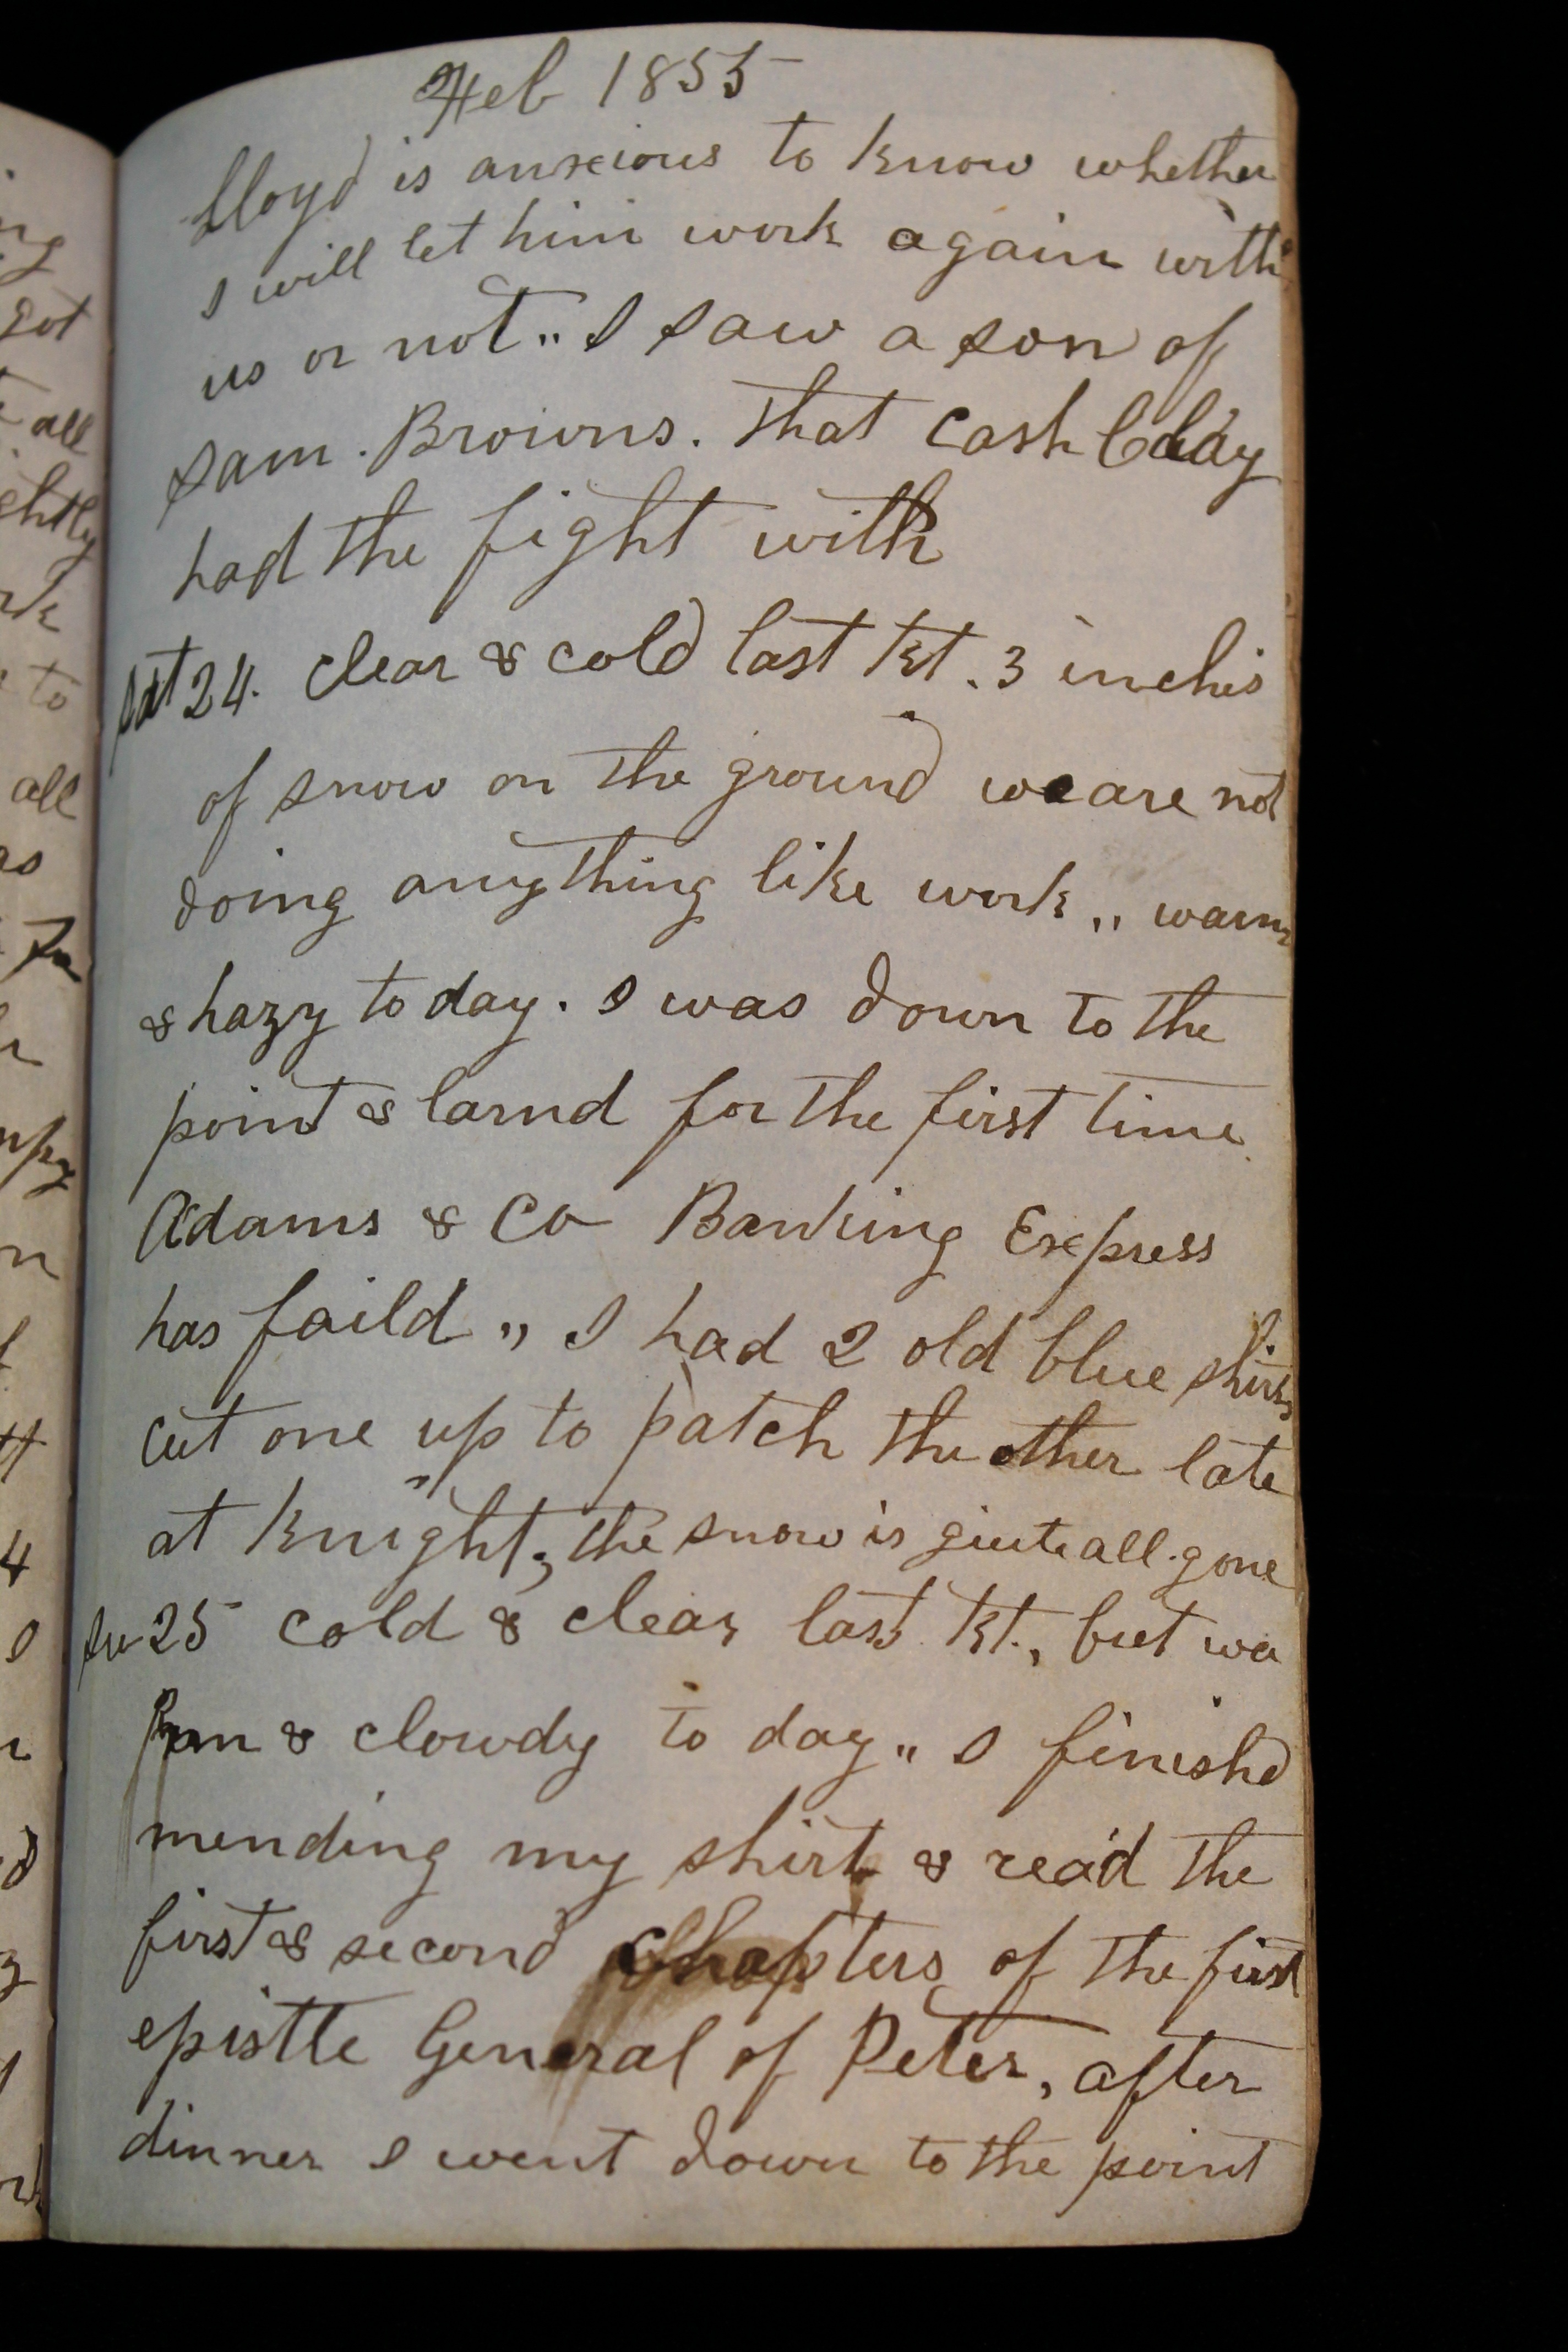 Feb 1855
Lloyd is anxious to know whether
I will let him work again with
us or not „ I saw a son of
Sam . Browns . that Cash
had the fight with
Sat 24. clear & cold last kt . 3 inchis
of snow on the ground we are not
doing anything like work „ warm
& hazy to day . I was down to the
point & larnd for the first time
Adams & Co Banking Express
has faild „ I had 2 old blue shirts
cut one up to patch the other late
at knight ; the snow is quite all . gone
Su 25 cold & clear last kt. , but wa
rm & clowdy to day „ I finishd
mending my shirt & read the
first & second Chapters of the first
epistle General of Peter , after
dinner I went down to the point